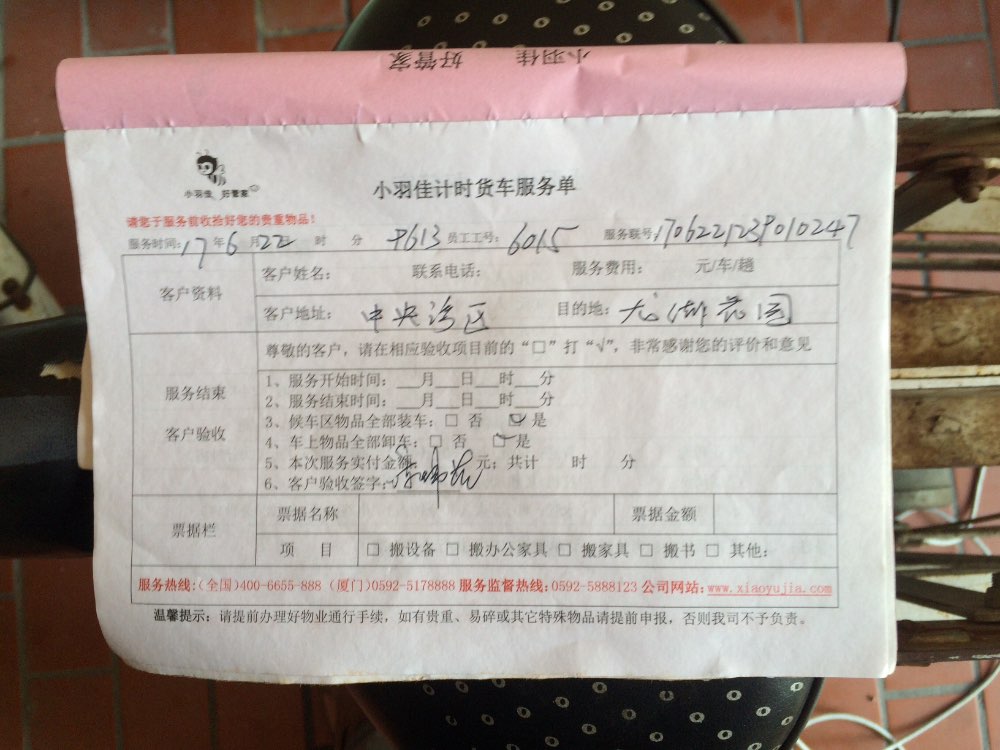 小羽佳 好管家
小羽佳 好管家
小羽佳计时货车服务单
请您于服务前收捡好您的贵重物品！
服务时间：17年6月22 时 分 9613 员工工号：6015 服务联号：1706221239010247
客户资料
客户姓名： 联系电话： 服务费用： 元/车/趟
客户地址：中央湾区 目的地：龙湖花园
服务结束
客户验收
尊敬的客户，请在相应验收项目前的“□”打“√”，非常感谢您的评价和意见
1、服务开始时间：___月___日___时___分
2、服务结束时间：___月___日___时___分
3、候车区物品全部装车：□ 否 ☑ 是
4、车上物品全部卸车：□ 否 ☑ 是
5、本次服务实付金额 元；共计 时 分
6、客户验收签字：
票据栏
票据名称 票据金额
项 目 □ 搬设备 □ 搬办公家具 □ 搬家具 □ 搬书 □ 其他：
服务热线：(全国)400-6655-888 (厦门)0592-5178888 服务监督热线：0592-5888123 公司网站：www.xiaoyujia.com
温馨提示：请提前办理好物业通行手续，如有贵重、易碎或其它特殊物品请提前申报，否则我司不予负责。